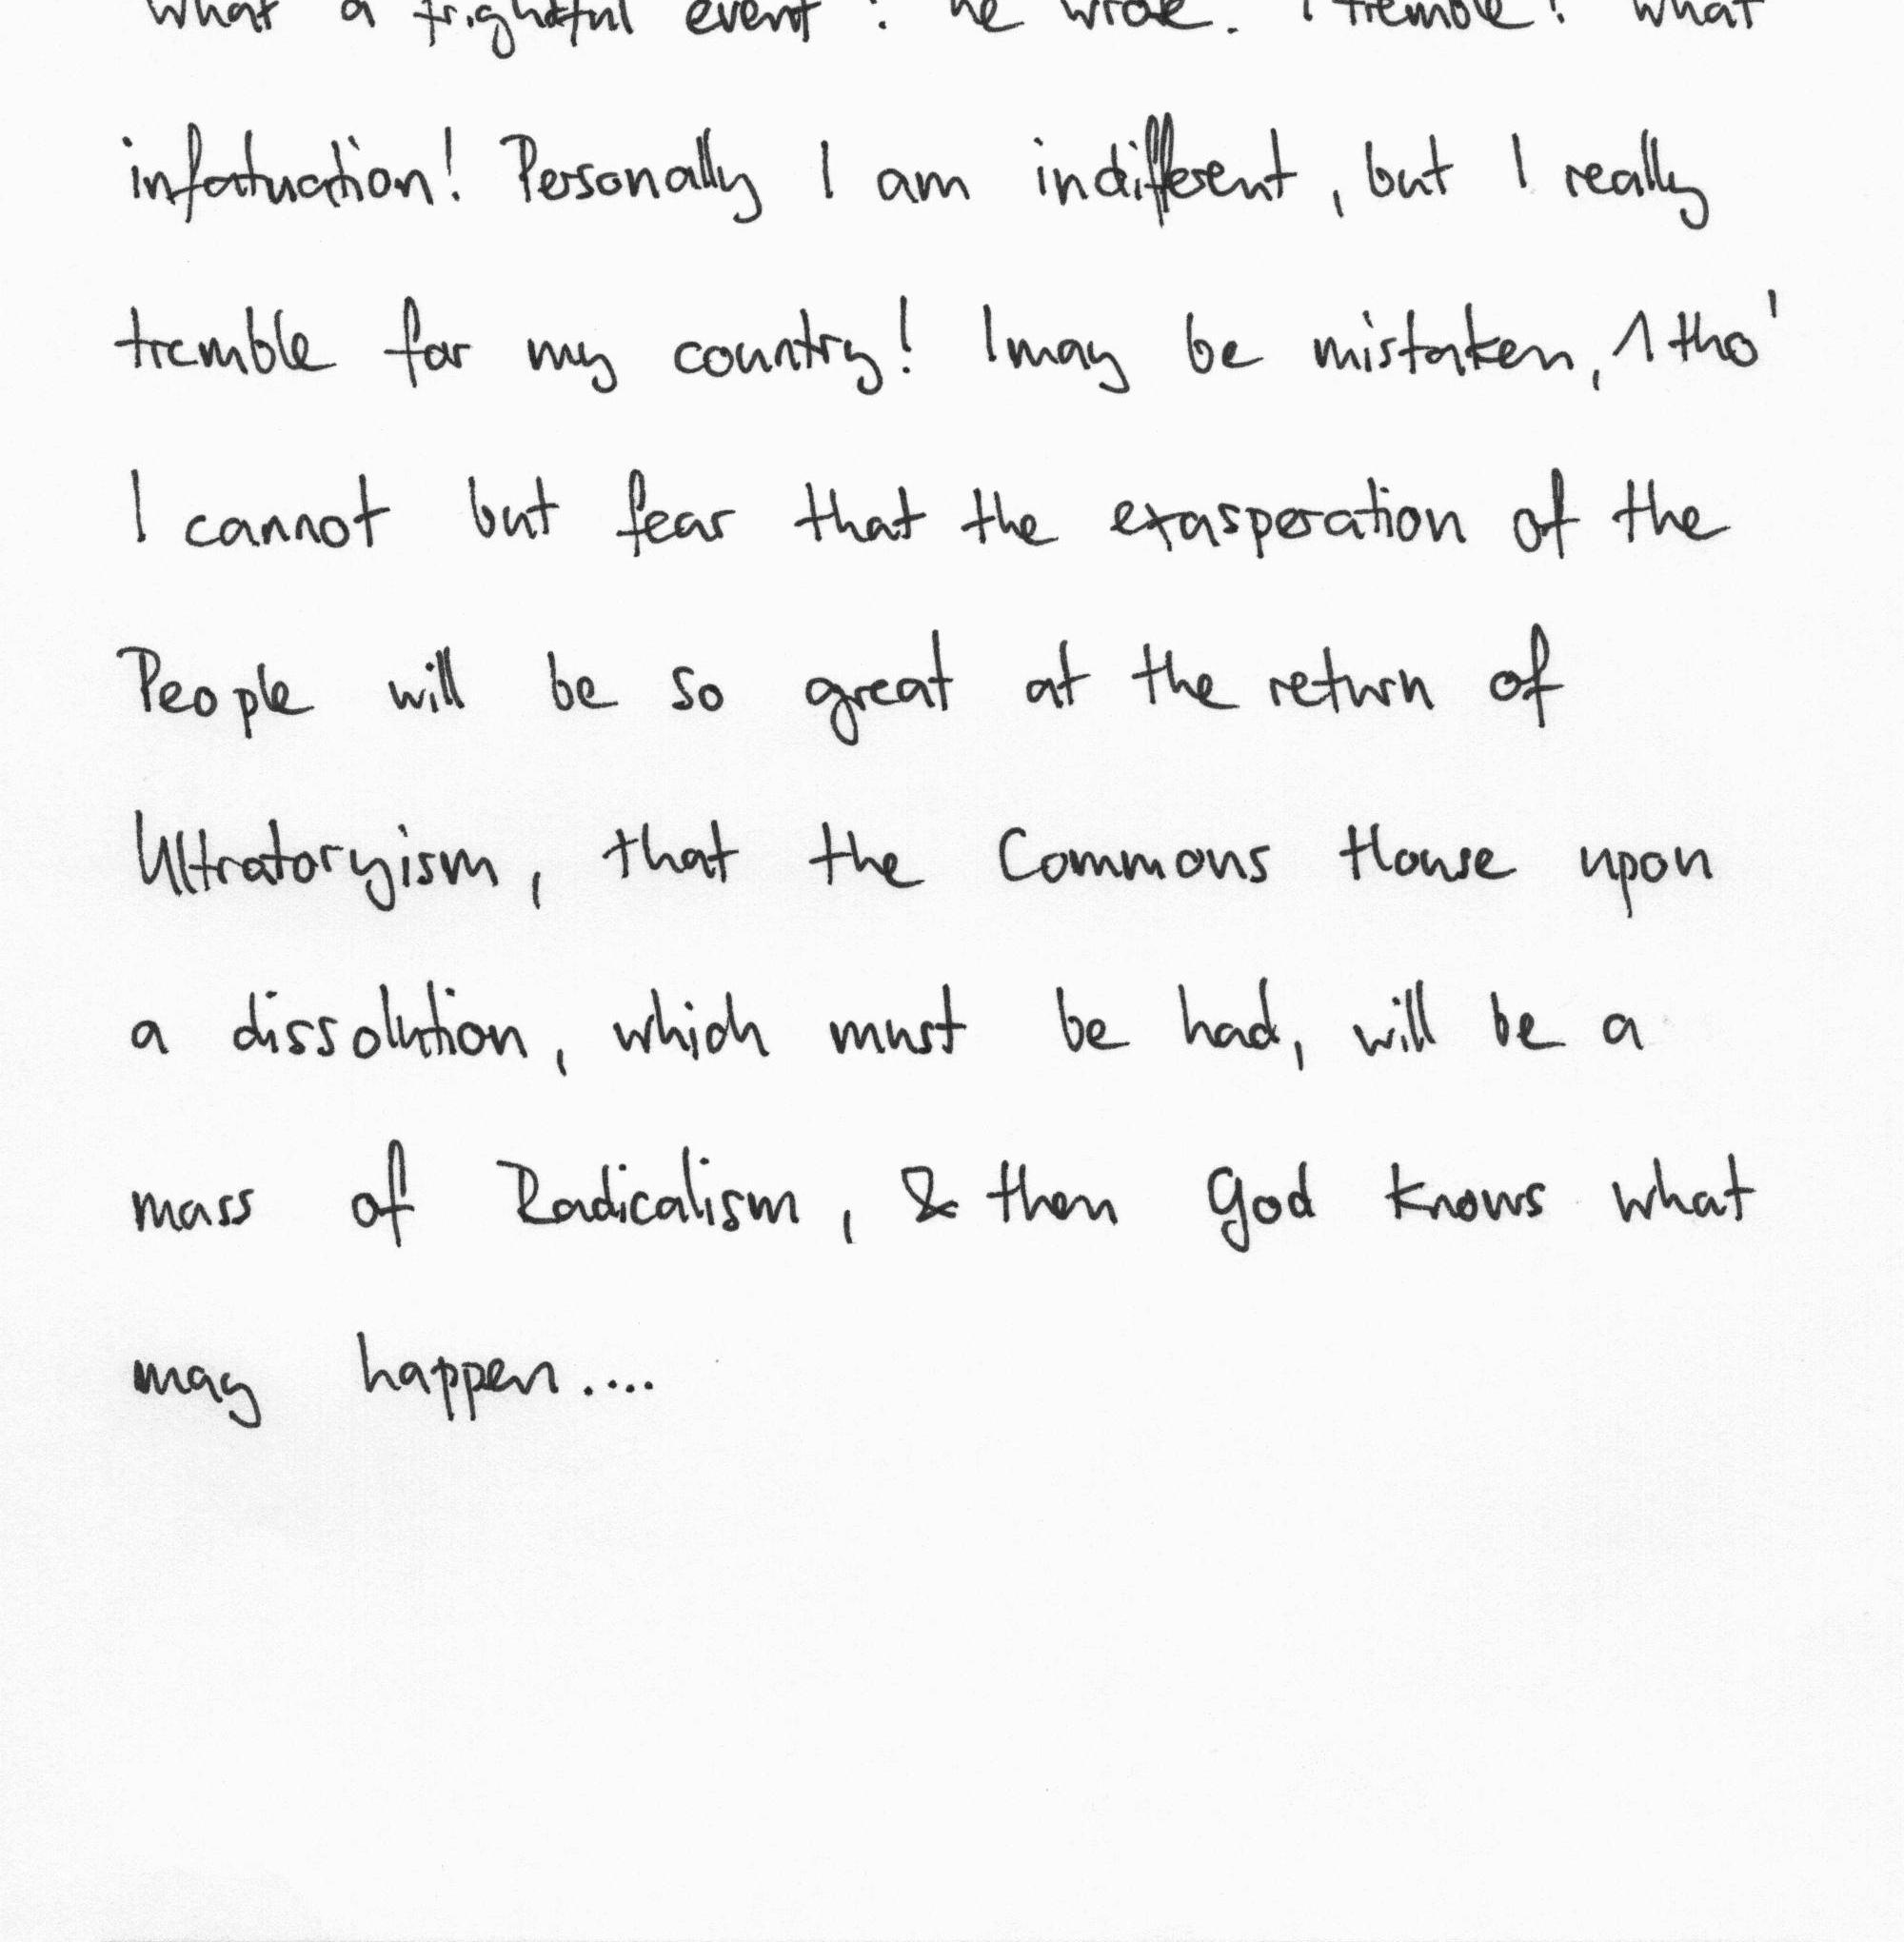 what a frightful event! he wrote. I tremble! what
infatuation! Personally I am indifferent, but I really
tremble for my country! I may be mistaken, 1 tho'
I cannot but fear that the exasperation of the
People will be so great at the return of
Ultratoryism, that the Commons House upon
a dissolution, which must be had, will be a
mass of Radicalism, & then God knows what
may happen....